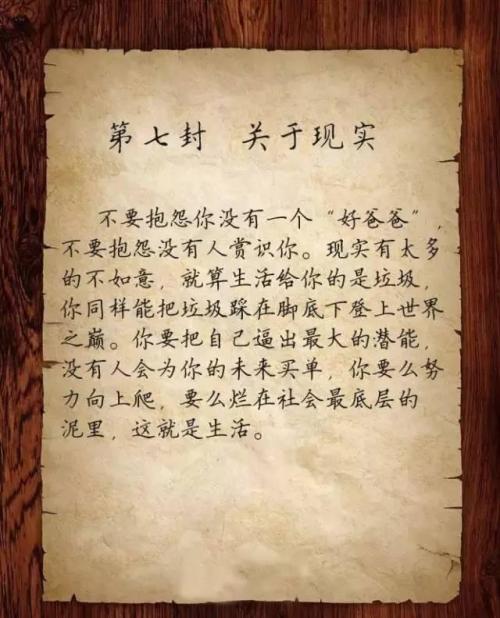 第七封 关于现实
不要抱怨你没有一个“好爸爸”，
不要抱怨没有人赏识你。现实有太多
的不如意，就算生活给你的是垃圾，
你同样能把垃圾踩在脚底下登上世界
之巅。你要把自己逼出最大的潜能，
没有人会为你的未来买单，你要么努
力向上爬，要么烂在社会最底层的
泥里，这就是生活。